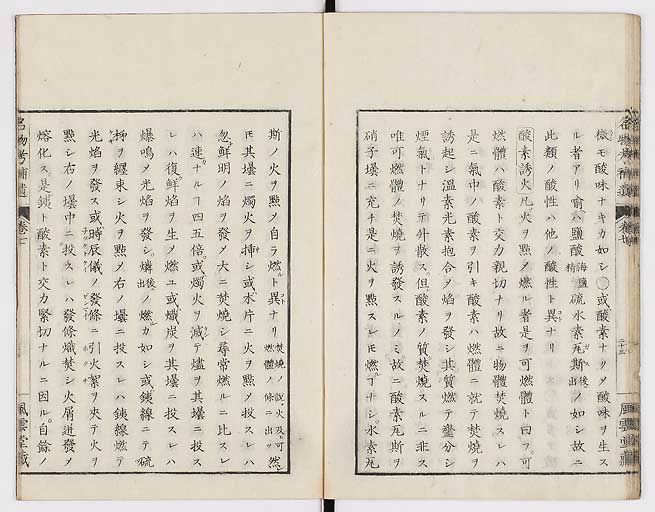 微モ酸味ナキカ如シ○或酸素ナリメ酸味ヲ生ス
ル者アリ喩ヘハ鹽酸海鹽精硫水素瓦斯後出ノ如シ故ニ
此類ノ酸性ハ他ノ酸性ト異ナリ
酸素誘火凡火ヲ點メ燃ル者是ヲ可燃體ト曰フ可
燃體ハ酸素ト交力親切ナリ故ニ物體焚燒スレハ
是ニ氣中ノ酸素ヲ引キ酸素ハ燃體ニ就テ焚燒ヲ
誘起シ溫素光素抱合メ焰ヲ發シ其質燃テ釐分シ
煙氣トナリテ外散ス但酸素ノ質焚燒スルニ非ス
唯可燃體ノ焚燒ヲ誘發スルノミ故ニ酸素瓦斯ヲ
硝子壜ニ充チ是ニ火ヲ點スレモ燃ヿナシ水素瓦
風雲堂藏
名物考補遺
卷七
風雲堂藏
斯ノ火ヲ點メ自ラ燃ルト異ナリ焚燒ノ說火及可燃體ノ條ニ出ツ然
モ其壜ニ燭火ヲ揷シ或木片ニ火ヲ點メ投スレハ
忽鮮明ノ焰ヲ發メ大ニ焚燒シ尋常燃ルニ比スレ
ハ速ナルヿ四五倍或燭火ヲ滅テ燼ヲ其壜ニ投ス
レハ復鮮焰ヲ生メ燃ユ或熾炭ヲ其壜ニ投スレハ
爆鳴メ光焰ヲ發シ燐後出ノ燃カ如シ或銕線ニテ硫
ヲ纏束シ火ヲ點メ右ノ壜ニ投スレハ銕線燃テ
光焰ヲ發ス或時辰儀ノ發條ニ引火絮ヲ夾テ火ヲ
點シ右ノ壜中ニ投スレハ發條熾焚シ火屑迸發メ
熔化ス是銕ト酸素ト交力緊切ナルニ因ル自餘ノ